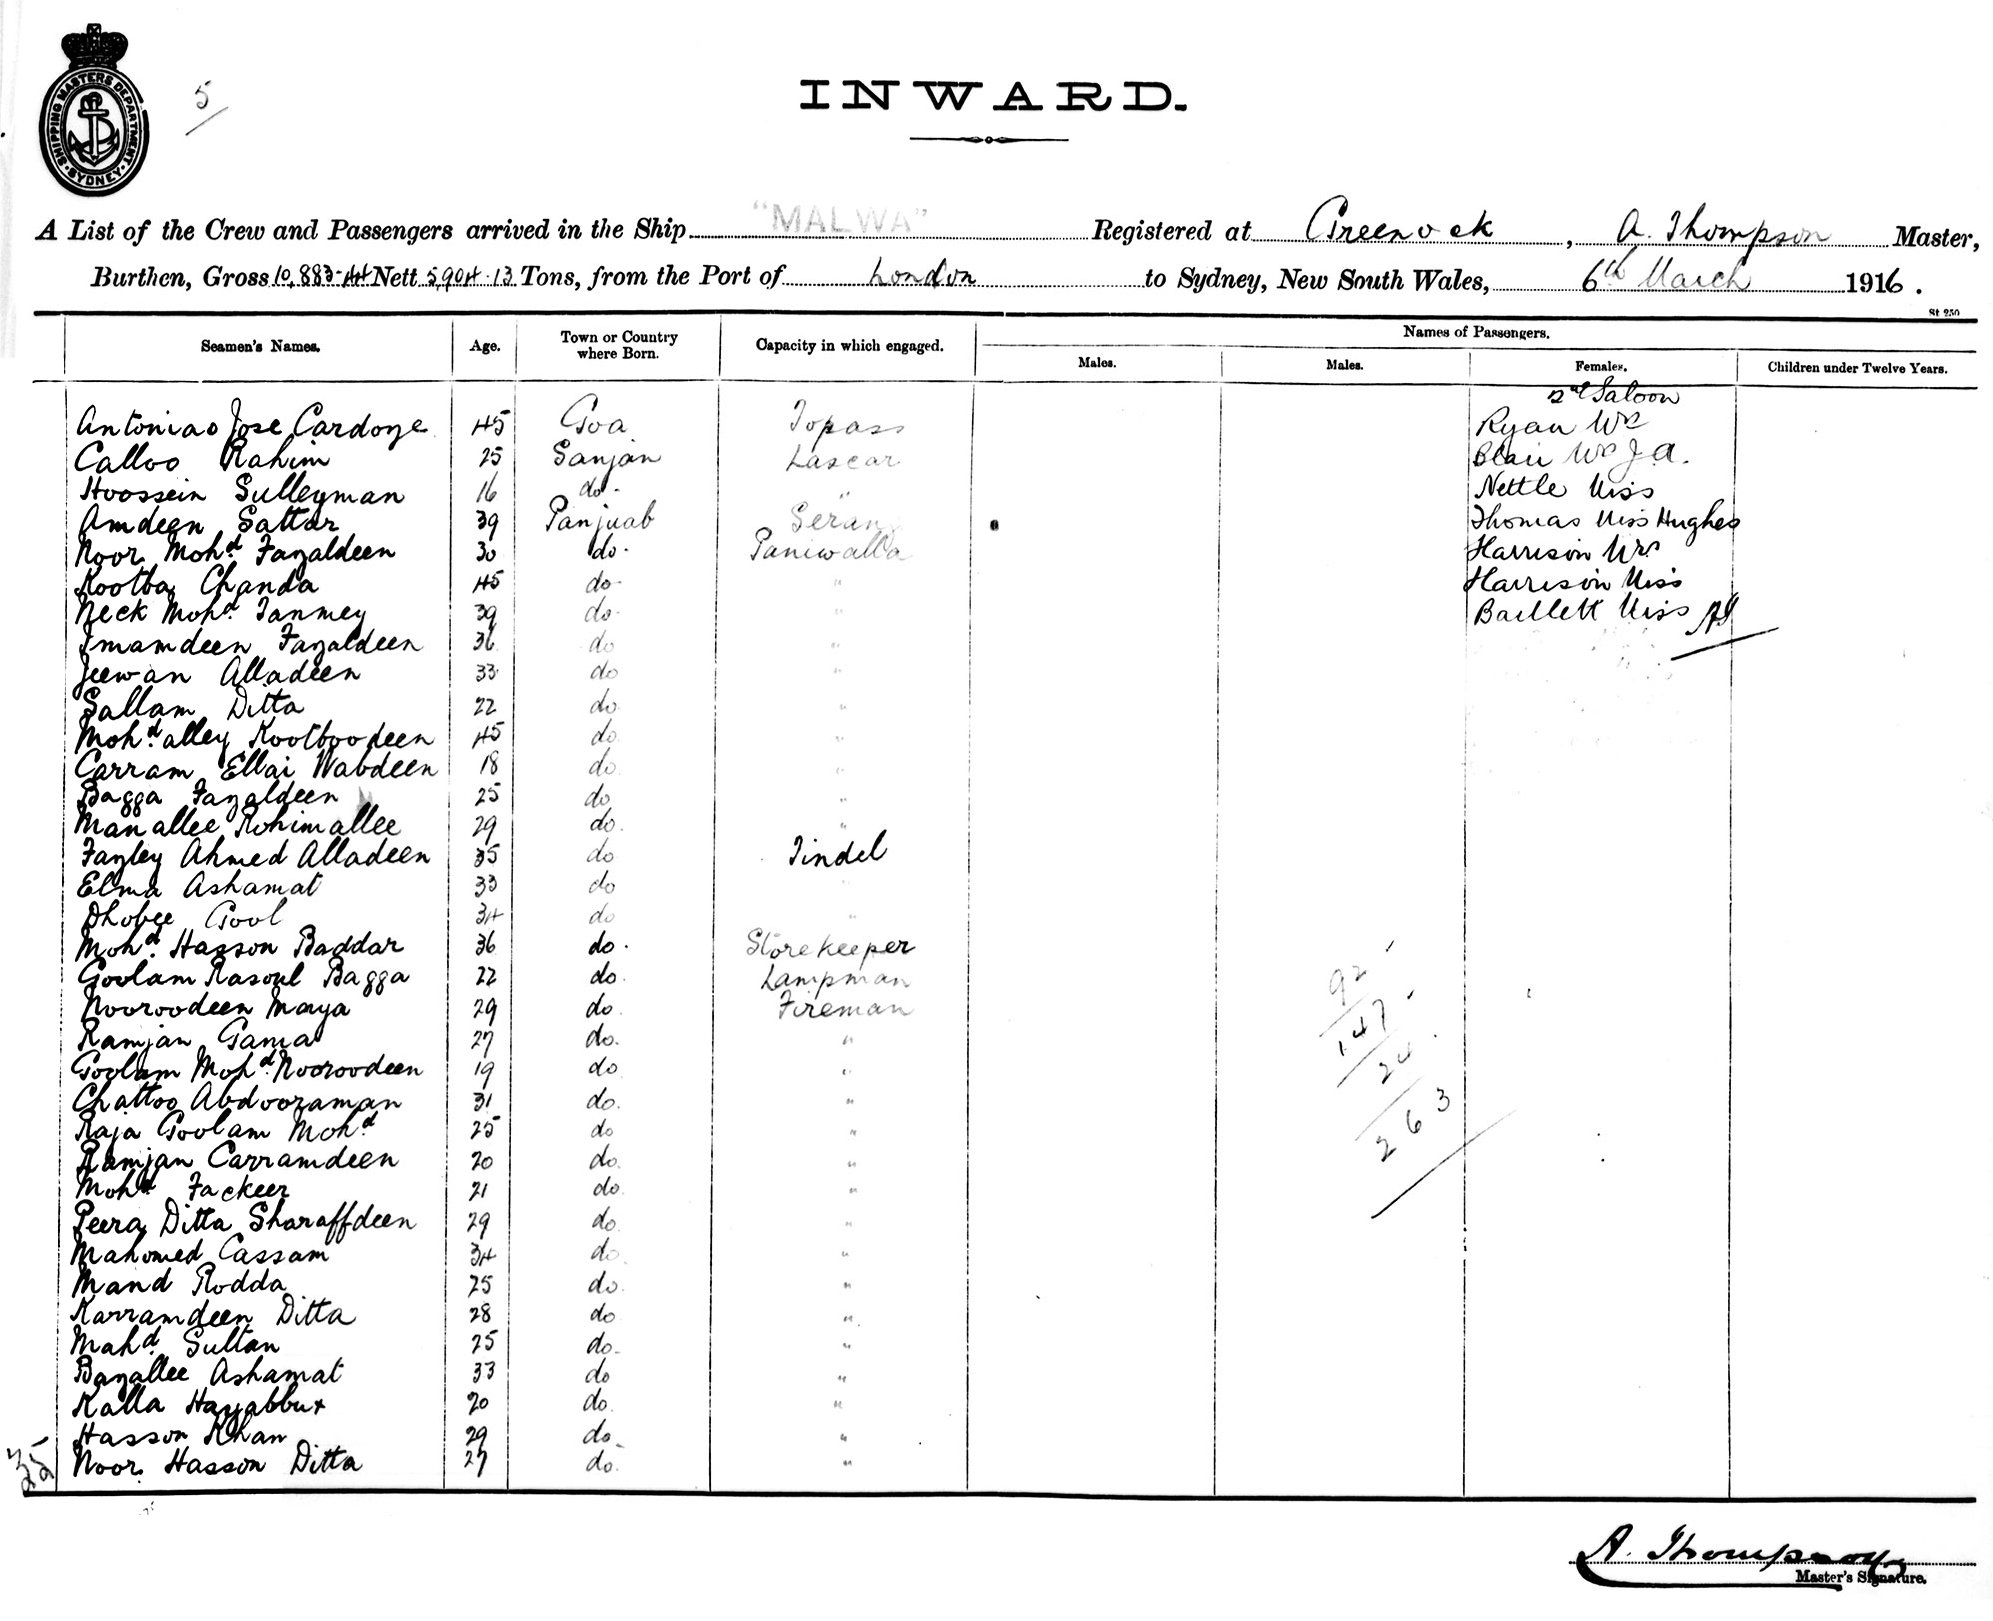 SHIPPING MASTERS DEPARTMENT
SYDNEY
5
INWARD.
A List of the Crew and Passengers arrived in the Ship "MALWA" Registered at Greenock, A. Thompson Master,
Burthen, Gross 10,883-44 Nett 5904.13 Tons, from the Port of London to Sydney, New South Wales, 6th March 1916.
St 250
Seamen's Names. Age. Town or Country where Born. Capacity in which engaged. Names of Passengers.
Males. Males. Females. Children under Twelve Years.
2nd Saloon
Antoniao Jose Cardoze 45 Goa Topass Ryan Mrs
Calloo Rahim 25 Sanjan Lascar Blair Mrs J.A.
Hoossein Sulleyman 16 do. " Nettle Miss
Amdeen Sattar 39 Panjuab Serang Thomas Miss Hughes
Noor Mohd. Fazaldeen 30 do. Paniwalla Harrison Mrs
Kootba Chanda 45 do. " Harrison Miss
Neck Mohd. Tanmey 39 do. " Bartlett Miss
Imamdeen Fazaldeen 36 do "
Jeewan Alladeen 33 do "
Sallam Ditta 22 do. "
Mohd. alley Kootboodeen 45 do. "
Carram Ellai Wabdeen 18 do. "
Bagga Fazaldeen 25 do "
Manallee Rohimallee 29 do. "
Fazley Ahmed Alladeen 35 do Tindel
Elma Ashamat 33 do "
Dhobee Gool 34 do "
Mohd. Hasson Baddar 36 do. Storekeeper
Goolam Rasoul Bagga 22 do. Lampman
Nooroodeen Maya 29 do. Fireman
Ramjan Gama 27 do. "
Goolam Mohd. Nooroodeen 19 do "
Chattoo Abdooraman 31 do. "
Raja Goolam Mohd 25 do "
Ramjan Carramdeen 20 do. "
Mohd Fackeer 21 do. "
Peera Ditta Sharaffdeen 29 do. "
Mahomed Cassam 34 do. "
Mand Rodda 25 do. "
Karramdeen Ditta 28 do "
Mahd. Sultan 25 do. "
Bazallee Ashamat 33 do "
Kalla Hayabbux 20 do. "
Hasson Khan 29 do. "
Noor Hasson Ditta 27 do. "
92
147
24
263
A. Thompson
Master's Signature.